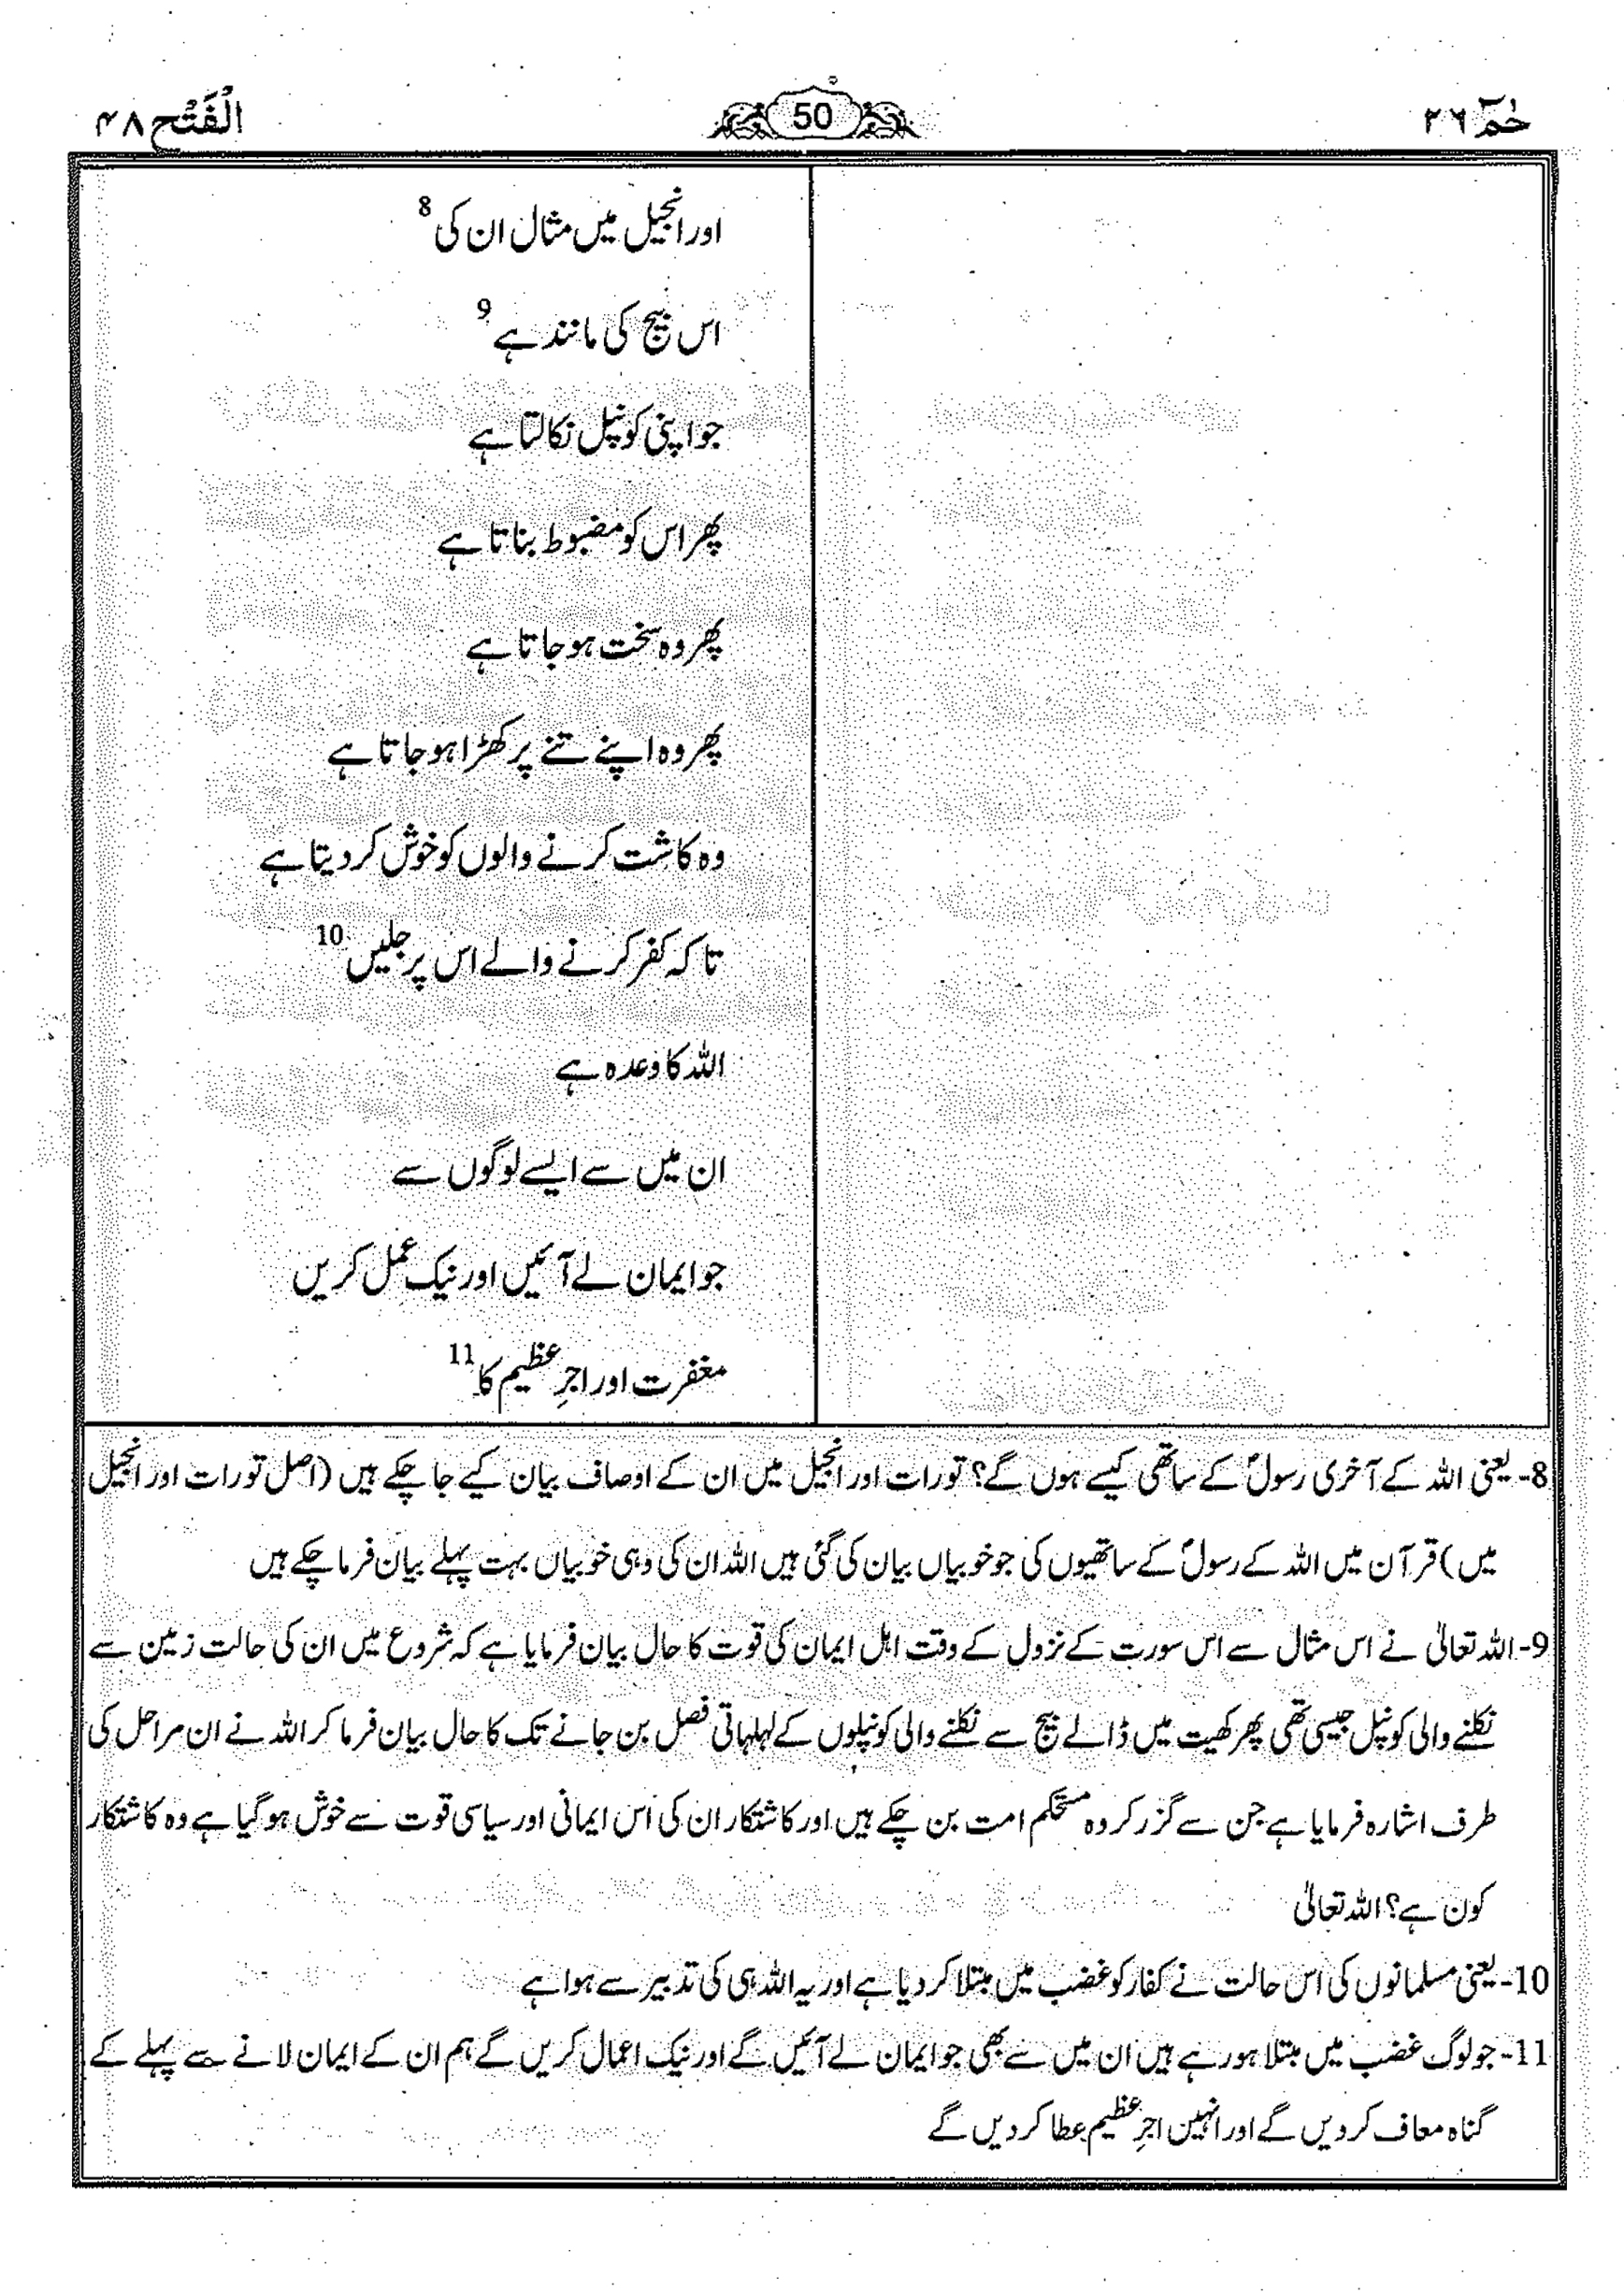 حٰمٓ ٢٦
50
الْفَتْح ٤٨
اور انجیل میں مثال ان کی 8
اس بیج کی مانند ہے 9
جو اپنی کونپل نکالتا ہے
پھر اس کو مضبوط بناتا ہے
پھر وہ سخت ہو جاتا ہے
پھر وہ اپنے تنے پر کھڑا ہو جاتا ہے
وہ کاشت کرنے والوں کو خوش کر دیتا ہے
تاکہ کفر کرنے والے اس پر جلیں 10
اللہ کا وعدہ ہے
ان میں سے ایسے لوگوں سے
جو ایمان لے آئیں اور نیک عمل کریں
مغفرت اور اجرِ عظیم کا 11
8- یعنی اللہ کے آخری رسولؐ کے ساتھی کیسے ہوں گے؟ تورات اور انجیل میں ان کے اوصاف بیان کیے جا چکے ہیں (اصل تورات اور انجیل
میں) قرآن میں اللہ کے رسولؐ کے ساتھیوں کی جو خوبیاں بیان کی گئی ہیں اللہ ان کی وہی خوبیاں بہت پہلے بیان فرما چکے ہیں
9- اللہ تعالیٰ نے اس مثال سے اس سورت کے نزول کے وقت اہل ایمان کی قوت کا حال بیان فرمایا ہے کہ شروع میں ان کی حالت زمین سے
نکلنے والی کونپل جیسی تھی پھر کھیت میں ڈالے بیج سے نکلنے والی کونپلوں کے لہلہاتی فصل بن جانے تک کا حال بیان فرما کر اللہ نے ان مراحل کی
طرف اشارہ فرمایا ہے جن سے گزر کر وہ مستحکم امت بن چکے ہیں اور کاشتکار ان کی اس ایمانی اور سیاسی قوت سے خوش ہو گیا ہے وہ کاشتکار
کون ہے؟ اللہ تعالیٰ
10- یعنی مسلمانوں کی اس حالت نے کفار کو غضب میں مبتلا کر دیا ہے اور یہ اللہ ہی کی تدبیر سے ہوا ہے
11- جو لوگ غضب میں مبتلا ہو رہے ہیں ان میں سے بھی جو ایمان لے آئیں گے اور نیک اعمال کریں گے ہم ان کے ایمان لانے سے پہلے کے
گناہ معاف کر دیں گے اور انہیں اجرِ عظیم عطا کر دیں گے